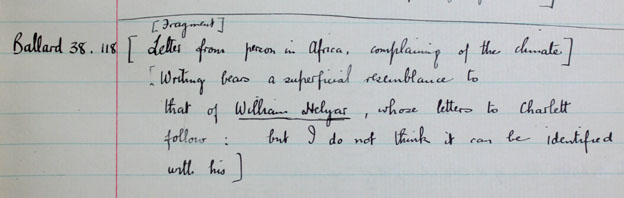 [Fragment]
Ballard 38. 118 [ Letter from person in Africa, complaining of the climate]
[Writing bears a superficial resemblance to
that of William Helyar, whose letters to Charlett
follow : but I do not think it can be identified
with his ]